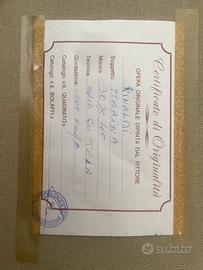 Certificato di Originalità
OPERA ORIGINALE DIPINTA DAL PITTORE
RINALDI
Soggetto MARINA
Misura 30 X 40
Tecnica OLIO SU TELA
Quotazione
Catalogo «IL QUADRATO»
Catalogo «E. BOLAFFI»
Subito.it